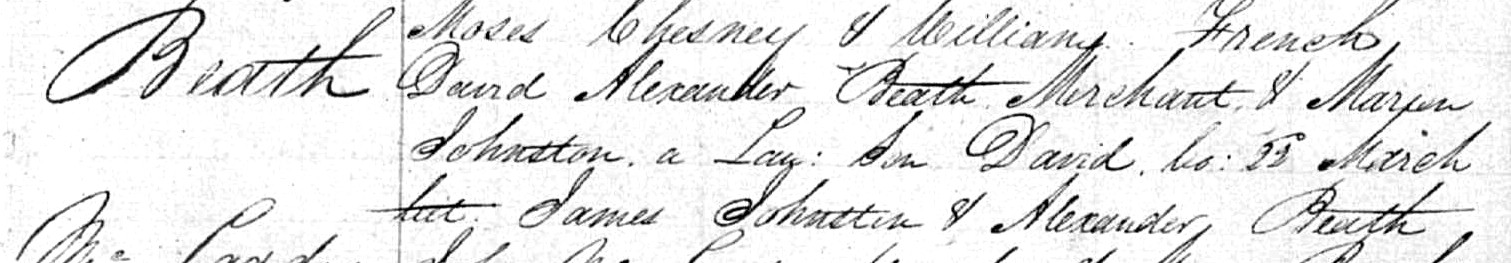 Moses Chesney & William French
Beath David Alexander Beath Merchant & Marion
Johnston a Law: Son David. bo: 22 March
Wit. James Johnston & Alexander Beath